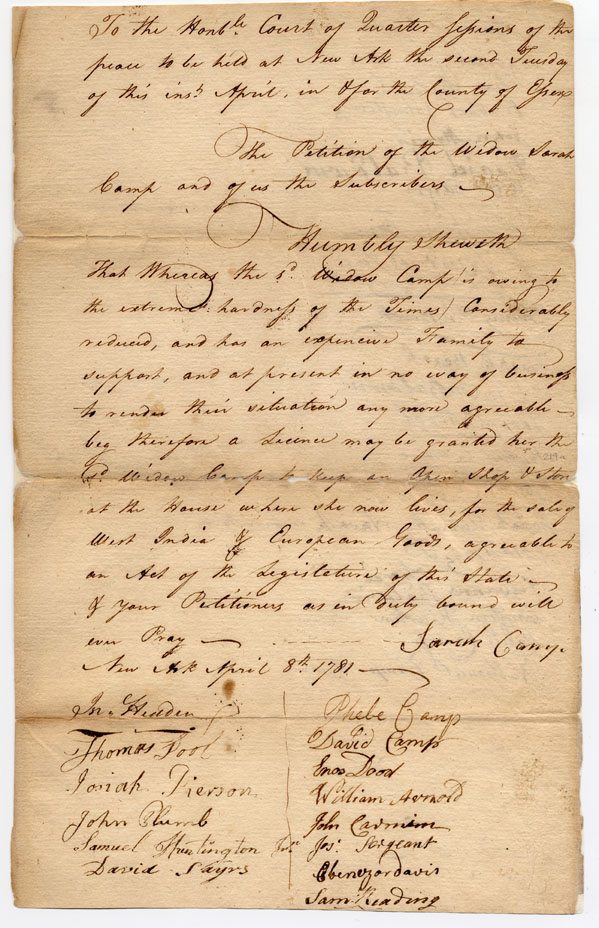 To the Honble Court of Quarter Sessions of the
peace to be held at New Ark the second Tuesday
of this inst April, in & for the County of Essex
The Petition of the Widow Sarah
Camp and of us the Subscribers
Humbly Sheweth
That Whereas the sd Widow Camp (is owing to
the extreme hardness of the Times) Considerably
reduced, and has an expencive Family to
support, and at present in no way of business
to render their situation any more agreeable
beg therefore a Licence may be granted her the
sd Widow Camp to keep an Open Shop & Store
at the House where she now lives, for the sale of
West India & European Goods, agreeable to
an Act of the Legislature of this State
& your Petitioners as in Duty bound will
ever Pray
Sarah Camp
New Ark April 8th 1781
Phebe Camp
Thomas
David Camp
Josiah Pierson
Enos Dood
William Arnold
John Plumb
John
Samuel Huntington Jnr
Jos. Sergeant
David Sayrs
Ebenezer davis
Sam. Reading